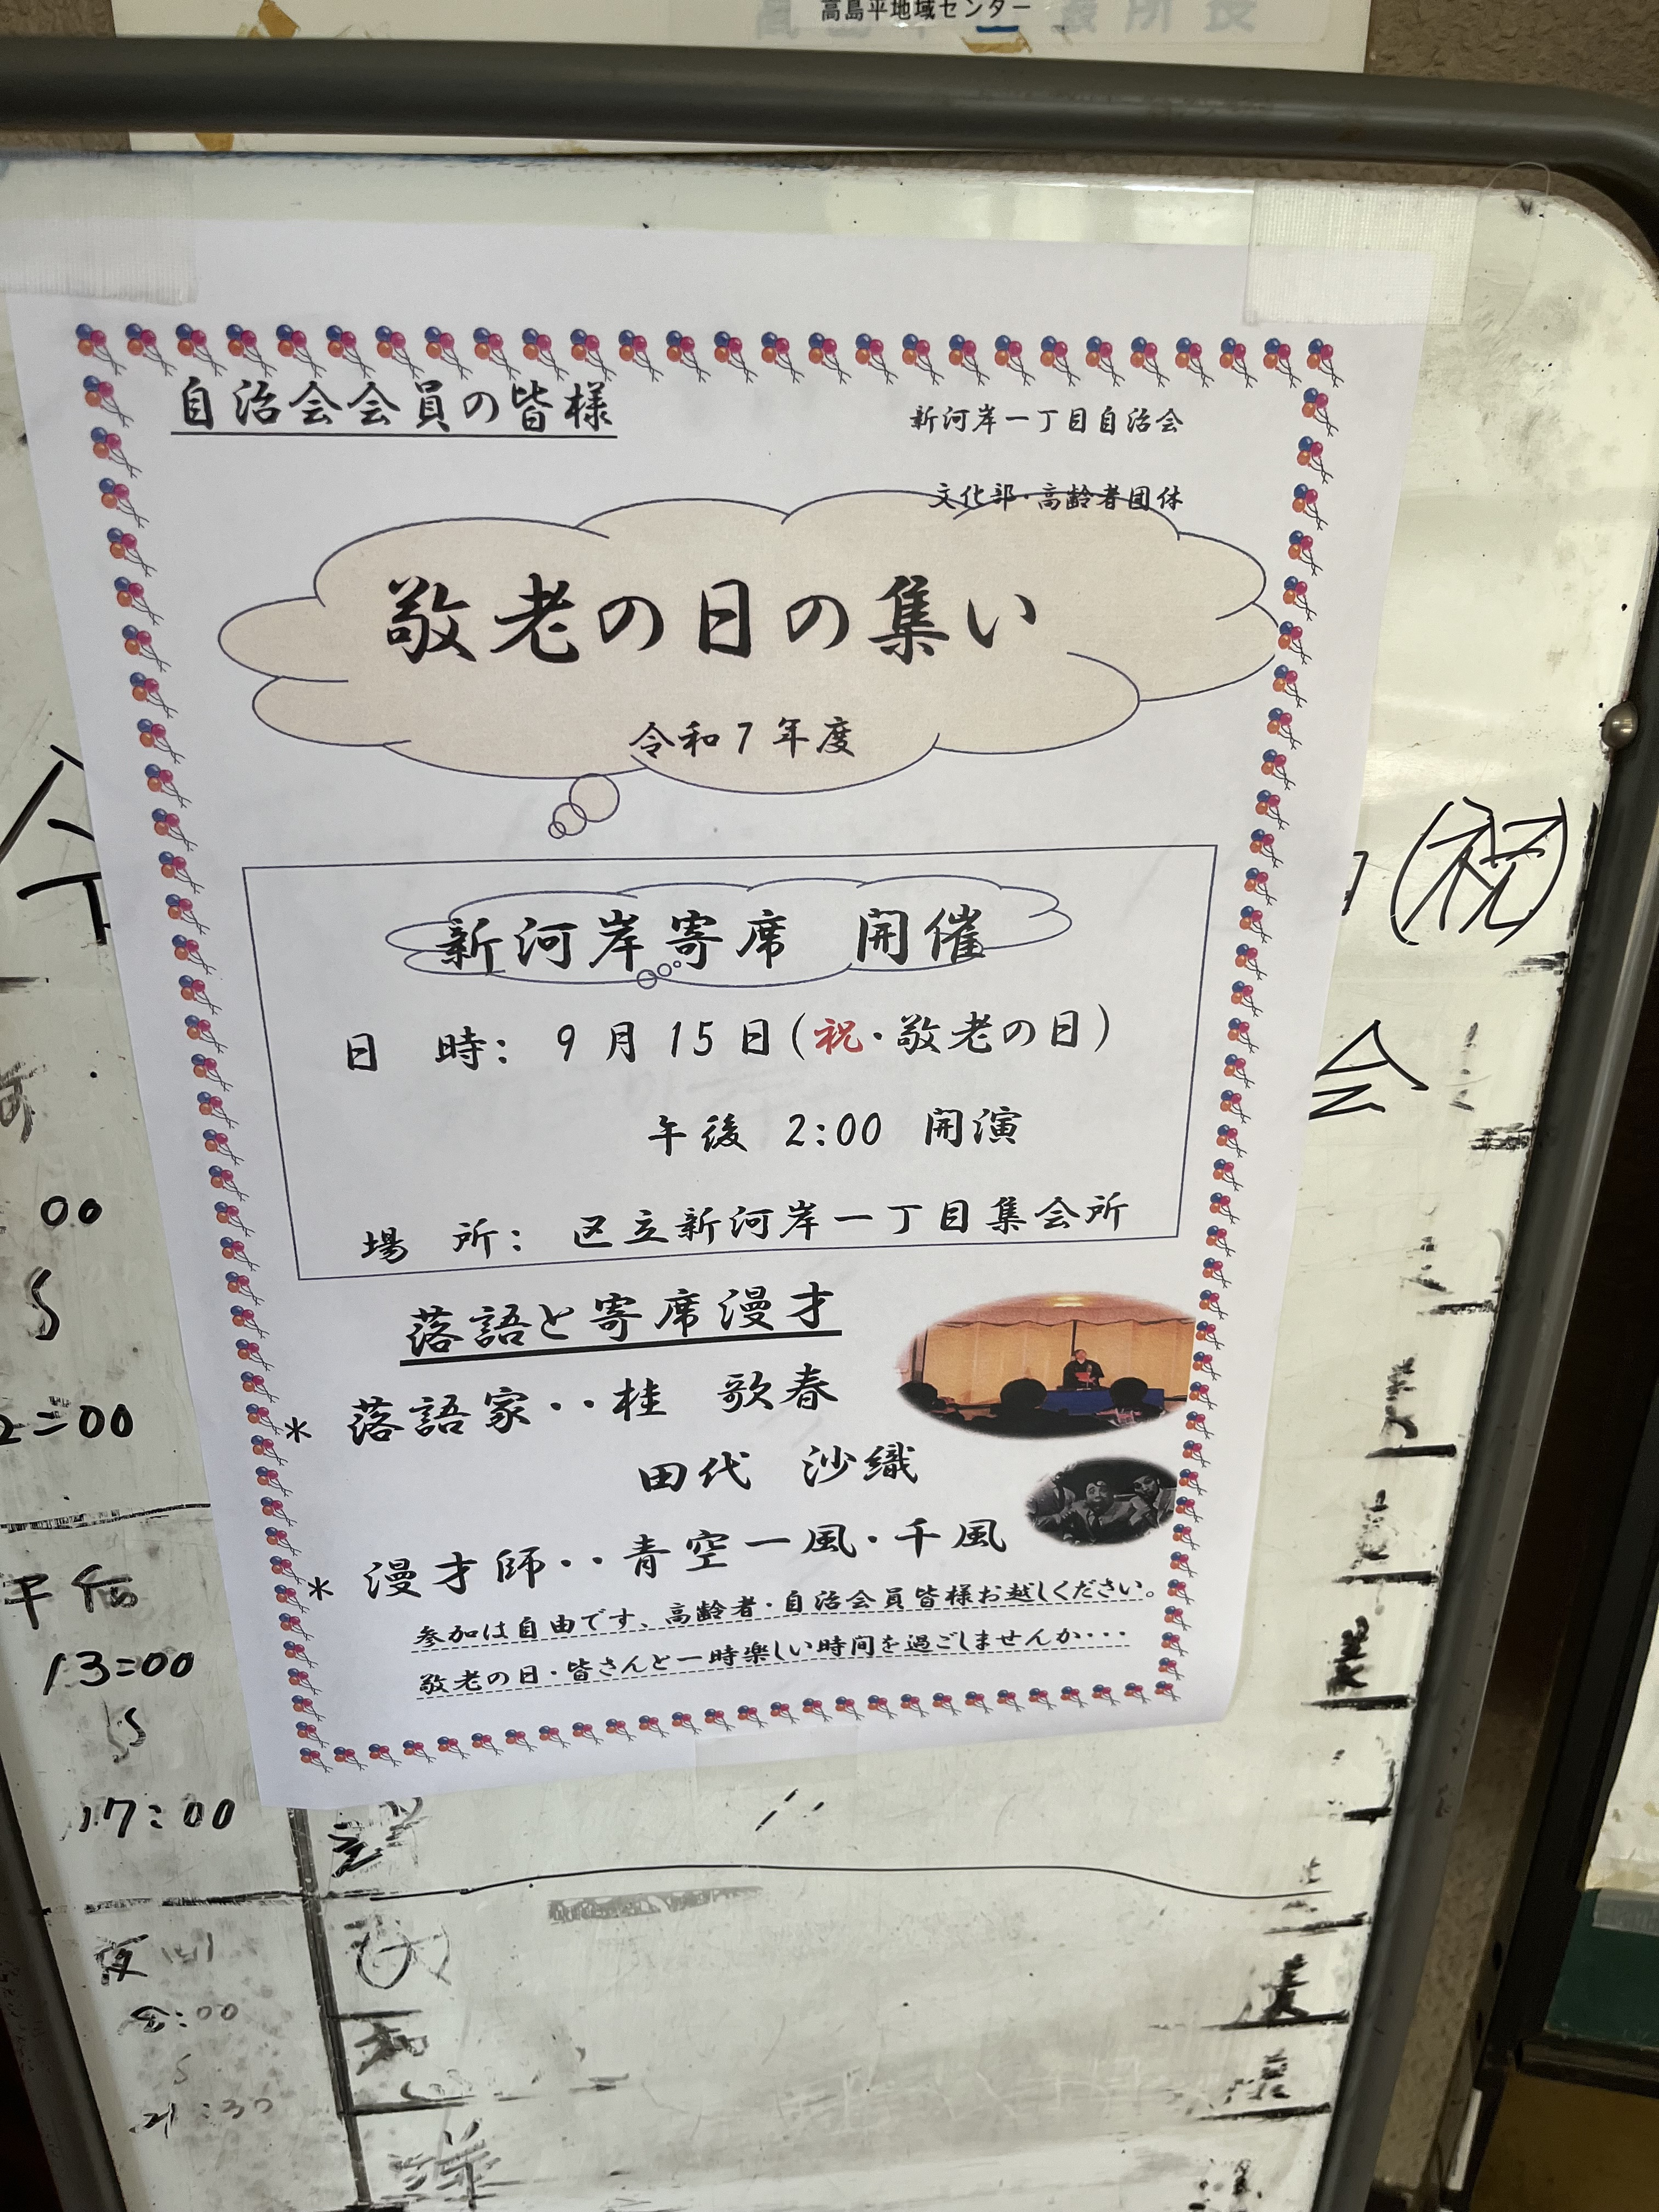 高島平地域センター
自治会会員の皆様
新河岸一丁目自治会
文化部・高齢者団体
敬老の日の集い
令和7年度
新河岸寄席 開催
日 時: 9月15日(祝・敬老の日)
午後 2:00 開演
場 所: 区立新河岸一丁目集会所
落語と寄席漫才
* 落語家・・桂 歌春
田代 沙織
* 漫才師・・青空一風・千風
参加は自由です、高齢者・自治会員皆様お越しください。
敬老の日・皆さんと一時楽しい時間を過ごしませんか・・・
(祝)
会
00
2:00
午后
13:00
17:00
夜
21:30